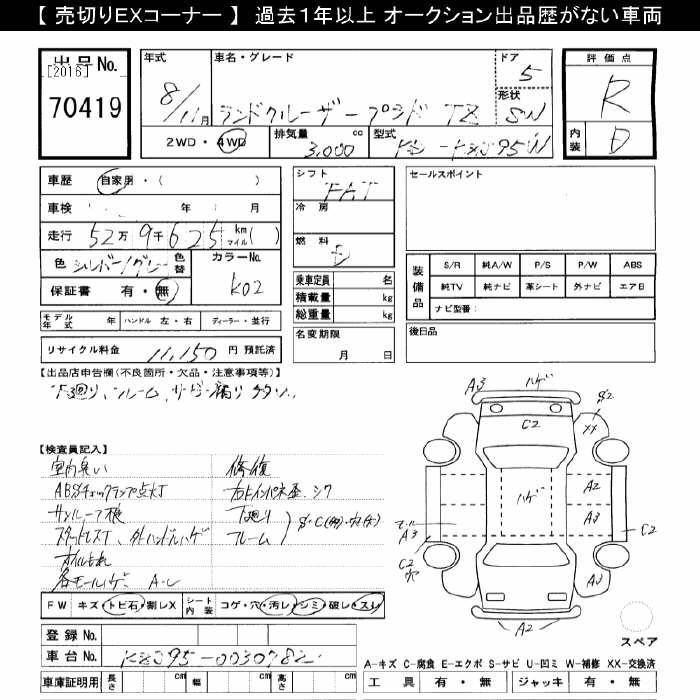 【 売切りEXコーナー 】 過去1年以上 オークション出品歴がない車両
出品 No.
[2016]
70419
年式
8/11月
車名・グレード
ランドクルーザープラド TZ
ドア
5
形状
SW
2WD・4WD
排気量 cc
3,000
型式
評価点
R
内装
D
車歴 自家用・( )
車検 年 月
走行 52万9千625 km マイル( )
色 シルバー/グレー 色替
カラーNo.
K02
保証書 有・無
モデル年式 年 ハンドル 左・右 ディーラー・並行
リサイクル料金 11,150 円 預託済
シフト
FAT
冷房
燃料
乗車定員 名
積載量 kg
総重量 kg
名変期限
月 日
セールスポイント
装備品
S/R 純A/W P/S P/W ABS
純TV 純ナビ 革シート 外ナビ エアB
ナビ型番:
後日品
【出品店申告欄(不良箇所・欠品・注意事項等)】
下回り、フレーム、サビ・腐り
【検査員記入】
室内臭い
ABSチェックランプ点灯
オイルもれ
各モールハゲ A-L
修復
下廻り
フレーム
FW キズ・トビ石・割レX
シート内装 コゲ・穴・汚レ・シミ・破レ・スレ
登録 No.
車台 No.
車庫証明用 長さ cm 幅 cm 高さ cm
A3 ハゲ
C2
S2
XX
ハゲ
A2
A3
A3
C2
C2
穴
A3
A2
スペア
A-キズ C-腐食 E-エクボ S-サビ U-凹ミ W-補修 XX-交換済
工具 有・無 ジャッキ 有・無